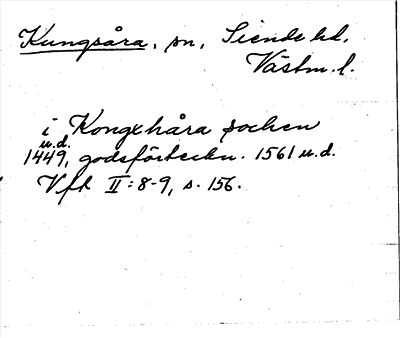 Kungsåra, sn, Siende hd.
Västm. l.
i Kongxhåra sochen
u.d.
1449, godsförteckn. 1561 u.d.
Vft II:8-9, s. 156.